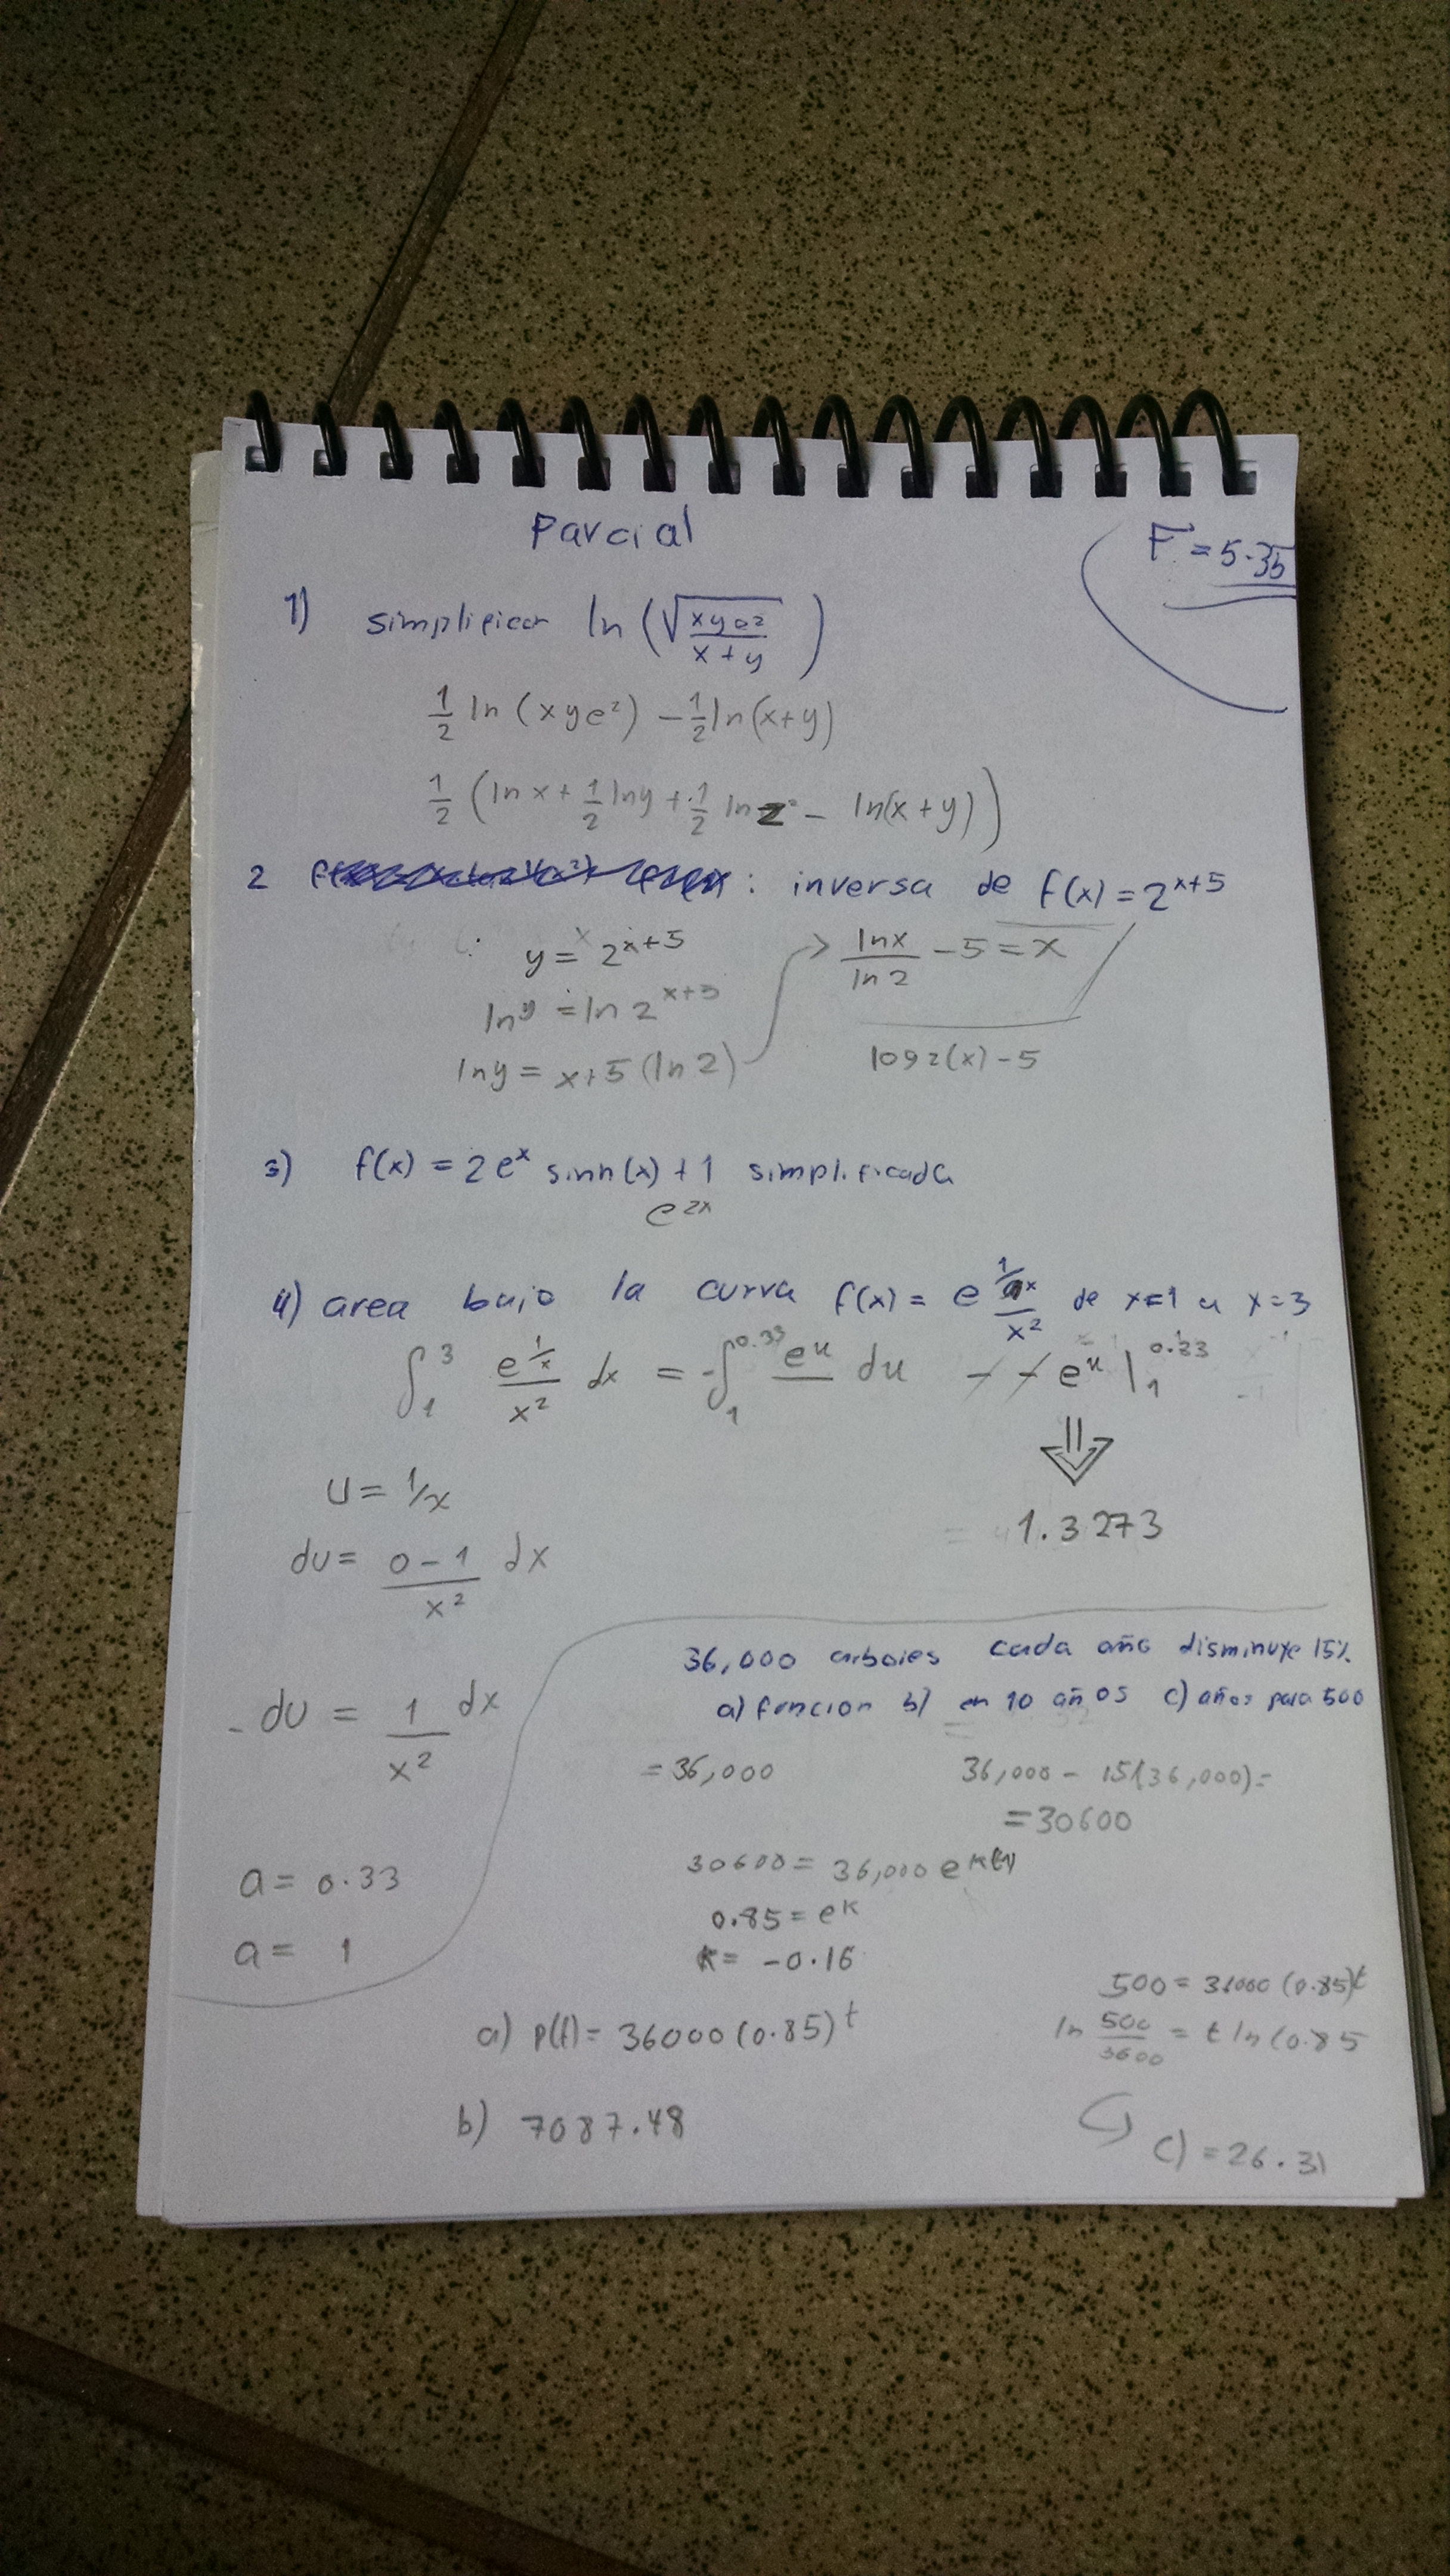 Parcial
F = 5.35
1) simplificar ln (√(xye^z / x+y))
1/2 ln (x y e^z) - 1/2 ln(x+y)
1/2 (ln x + 1/2 ln y + 1/2 ln z - ln(x+y))
2 : inversa de f(x) = 2^x+5
y = 2^x+5
ln y = ln 2^x+5
ln y = x+5 (ln 2)
ln x / ln 2 - 5 = x
log2(x) - 5
3) f(x) = 2e^x sinh(x) + 1 simplificada
e^2x
4) area bajo la curva f(x) = e^1/x / x^2 de x=1 a x=3
∫_1^3 e^1/x / x^2 dx = -∫_1^0.33 e^u du - - e^u |_1^0.33
⇓
= 1.3273
u = 1/x
du = 0-1 / x^2 dx
- du = 1 / x^2 dx
a = 0.33
a = 1
36,000 arboles cada año disminuye 15%
a) funcion b) en 10 años c) años para 500
= 36,000
36,000 - 15(36,000) =
= 30600
30600 = 36,000 e^k(1)
0.85 = e^k
k = -0.16
a) p(t) = 36000 (0.85)^t
b) 7087.48
500 = 36000 (0.85)^t
ln 500/3600 = t ln (0.85
c) = 26.31